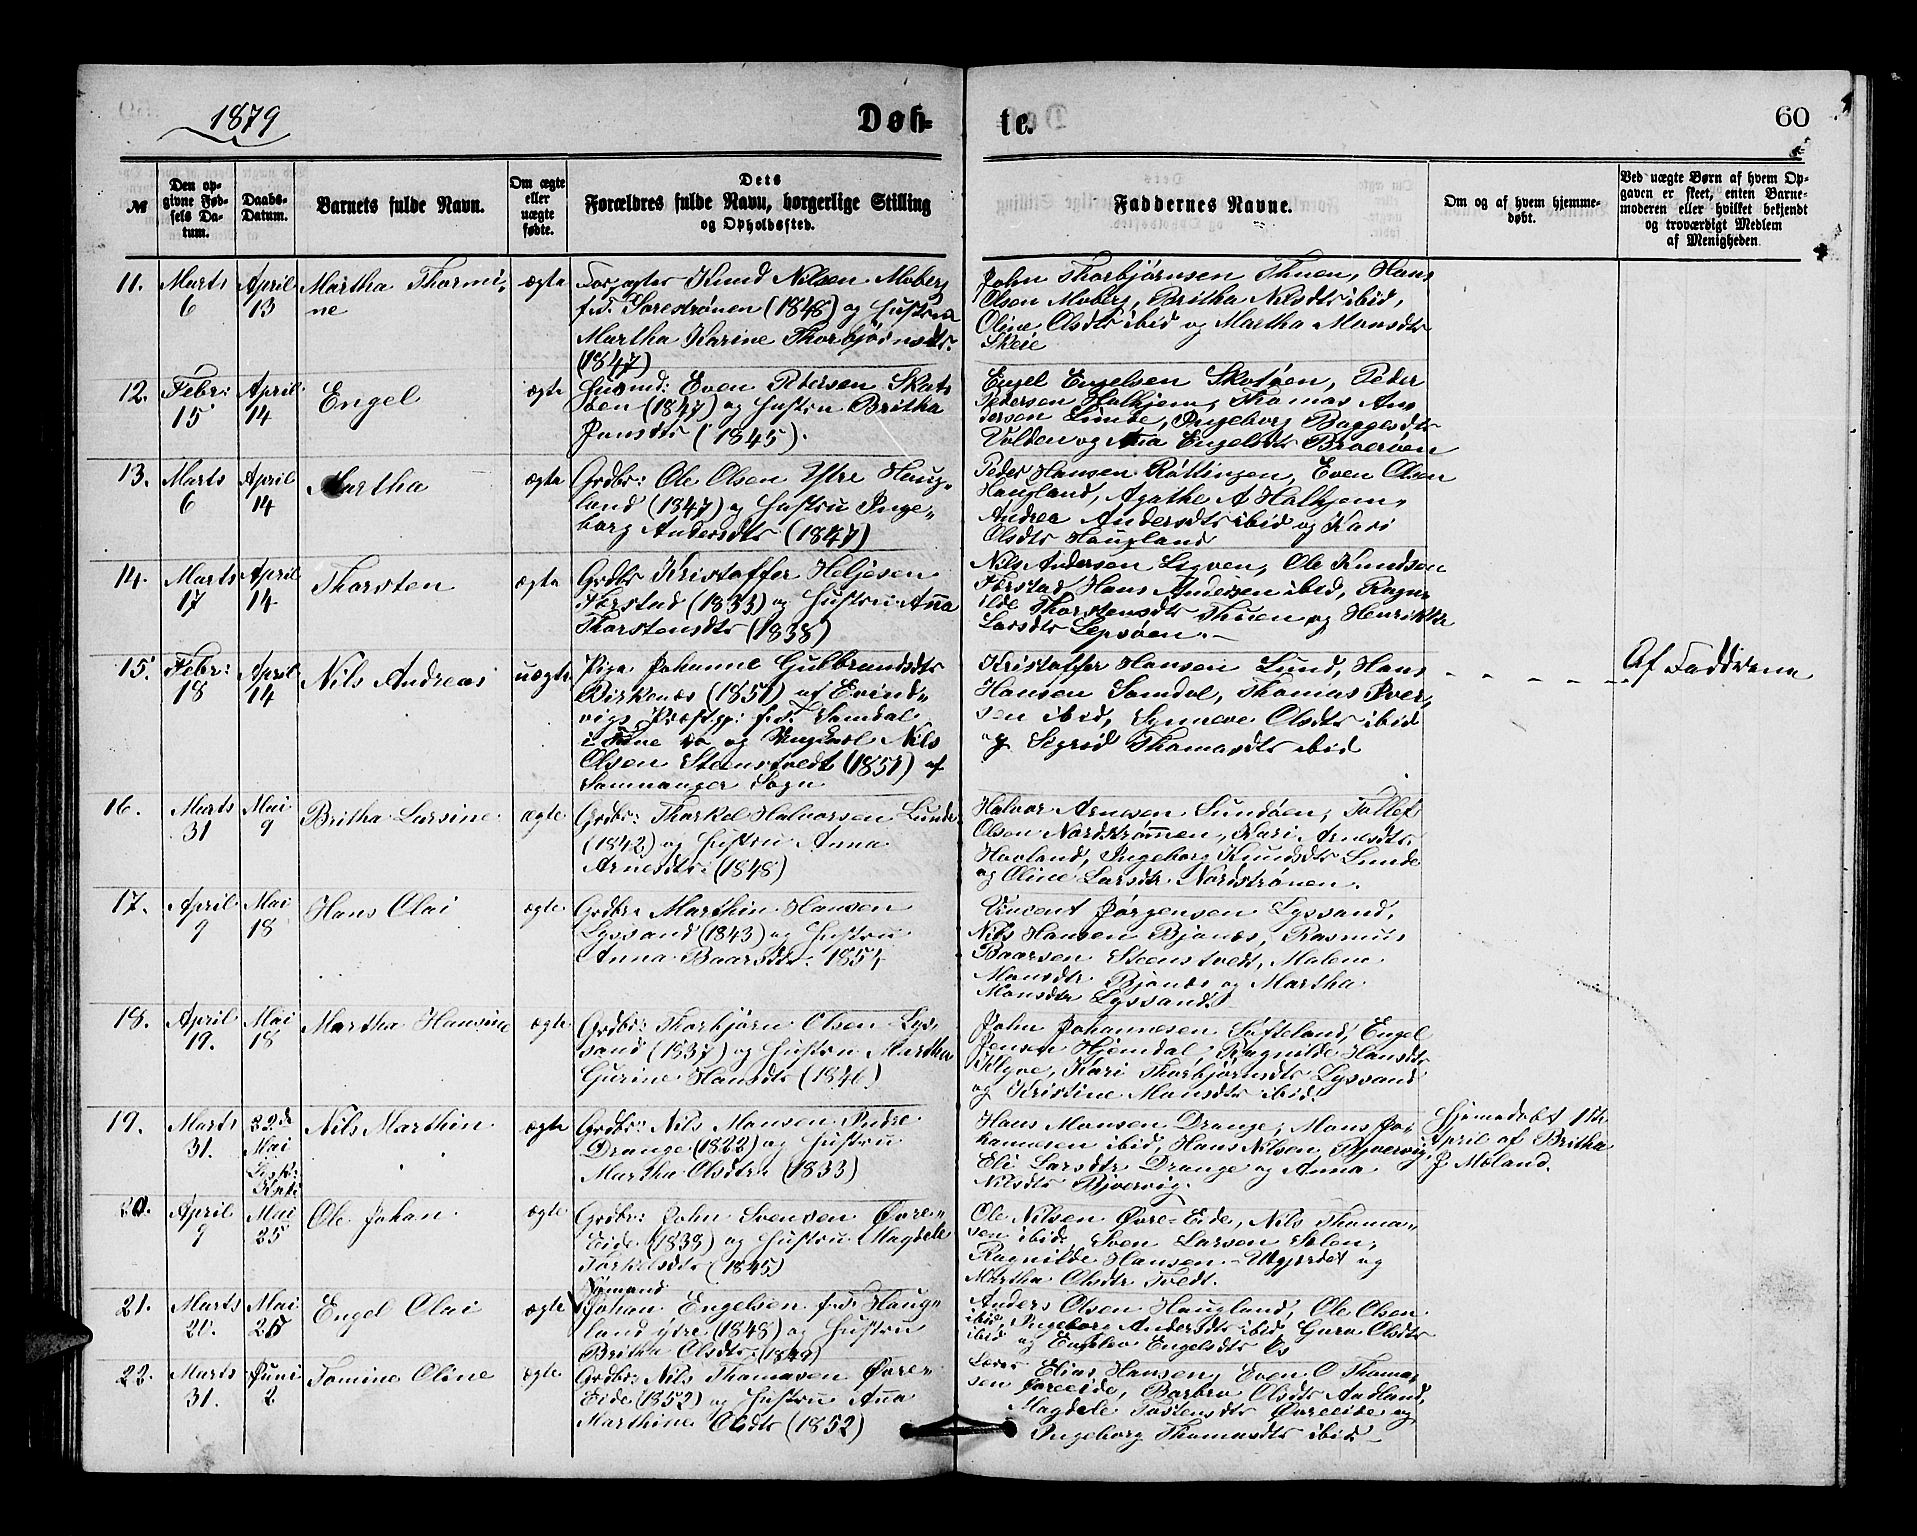 1879
Døb-
te.
60
№
Den op-
givne Fød-
sels Da-
tum.
Daabs-
Datum.
Barnets fulde Navn.
Om ægte
eller
uægte
fødte.
Dets
Forældres fulde Navn, borgerlige Stilling
og Opholdssted.
Faddernes Navne.
Om og af hvem hjemme-
døbt.
Ved uægte Børn af hvem Op-
gaven er skeet, enten Barne-
moderen eller hvilket bekjendt
og troværdigt Medlem
af Menigheden.
11.
Marts
6
April
13
Martha Thormi-
ne
ægte
Forpagter Knud Nilsen Moberg
f.T. Sorestrønen (1848) og Hustru
Martha Karine Thorbjørnsdtr
(1847)
John Thorbjørnsen Thuen, Hans
Olsen Moberg, Britha Nilsdtr ibid,
Oline Olsdtr ibid og Martha Monsdtr
Skeie
12.
Febr:
15
April
14
Engel
ægte
Husmd: Even Petersen Skots
øen (1847) og Hustru Britha
Jonsdtr (1845).
Engel Engelsen Skotøen, Peder
Pedersen Halhjem, Thomas An
dersen Lunde, Ingeborg Baggesdtr
Volden og Ana Engelsdtr Broerøen
13.
Marts
6
April
14
Martha
ægte
Grdbr: Ole Olsen Ystre Haug-
land (1847) og Hustru Inge-
borg Andersdtr (1847)
Peder Hansen Røttingen, Even Olsen
Haugland, Agathe A Halhjem,
Andrea Andersdtr ibid og Kari
Olsdtr Haugland
14.
Marts
17
April
14
Thorsten
ægte
Grdbr Kristoffer Heljesen
Færstad (1833) og Hustru Anna
Thorstensdtr (1838)
Nils Andersen Legven, Ole Knudsen
Færstad, Hans Andersen ibid, Ragn
ilde Thorstensdtr Thuen og Henrikke
Larsdtr Lepsøen.
15.
Febr:
18
April
14
Nils Andreas
uægte
Pige Johanne Gulbrandsdtr
Birkenæs (1851) af Evind-
vigs Præstgj: f.T. Samdal
i Fane so og Ungkarl Nils
Olsen Steenstvedt (1851) af
Samnanger Sogn
Kristoffer Hansen Lund, Hans
Hansen Samdal, Thomas Iver-
sen ibid, Synneve Olsdtr ibid
og Sigrid Thomasdtr ibid
Af Fadderne
16.
Marts
31
Mai
9
Britha Larsine
ægte
Grdbr: Thorkel Halvorsen Lunde
(1842) og Hustru Anna
Arnesdtr (1848)
Halvor Arnesen Sundøen, Tollef
Olsen Nordstrømen, Kari Arnesdtr
Havland, Ingeborg Knudsdtr Lunde
og Oline Larsdtr Nordstrønen.
17.
April
9
Mai
18
Hans Olai
ægte
Grdbr Marthin Hansen
Lyssand (1843) og Hustru
Anna Baarsdtr 1854
Vincent Jørgensen Lyssand,
Nils Hansen Bjonæs, Rasmus
Baarsen Steenstvedt, Malene
Monsdtr Bjonæs og Martha
Monsdtr Lyssand.
18.
April
19.
Mai
18
Martha Hansine
ægte
Grdbr: Thorbjørn Olsen Lys-
sand (1837) og Hustru Martha
Gurine Hansdtr (1846)
John Johannesen Søfteland, Engel
Jensen Hjemdal, Ragnilde Hansdtr
Klyve, Kari Thorbjørnsdtr Lyssand
og Kristine Monsdtr ibid.
19.
Marts
31.
22de
Mai
Nils Marthin
ægte
Grdbr: Nils Monsen Indre
Drange (1822) og Hustru
Martha Olsdtr (1833)
Hans Monsen Drange, Mons Jo-
hannesen ibid, Hans Nilsen Bjørvig,
Eli Larsdtr Drange og Anna
Nilsdtr Bjørvig.
Hjemedøbt 1ste
April af Britha
J. Moland.
20.
April
9
Mai
25
Ole Johan
ægte
Grdbr: John Svensen Øvre-
Eide (1838) og Hustru Magdele
Torkelsdtr (1845)
Ole Nilsen Øvre-Eide, Nils Thoma-
sen ibid, Sven Larsen Solen,
Ragnilde Hansen og
Martha Olsdtr Tvedt.
21.
Marts
20.
Mai
25
Engel Olai
ægte
Sømand
Johan Engelsen f.T. Haug-
land ytre (1848) og Hustru
Britha Olsdtr (1849)
Anders Olsen Haugland, Ole Olsen
ibid, Ingeborg Andersdtr ibid, Guro Olsdtr
ibid og Engelsdtr Os
22.
Marts
31.
Juni
2
Tomine Oline
ægte
Grdbr: Nils Thomasen Øvre-
Eide (1852) og Hustru Ana
Marthine Olsdtr (1852)
Lærer Elias Hansen, Even O Thoma-
sen Øvreeide, Barbro Olsdtr Aadland,
Magdele Tostensdtr Øvreeide og
Ingeborg Thomasdtr ibid